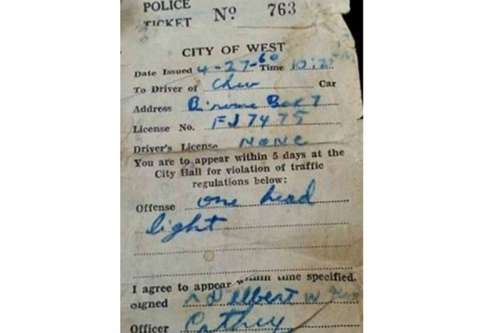 POLICE
TICKET No 763
CITY OF WEST
Date Issued 4-27-60 Time 10:2
To Driver of Chev Car
Address Box 7
License No. FJ 7475
Driver's License NONE
You are to appear within 5 days at the
City Hall for violation of traffic
regulations below:
Offense one head
light
I agree to appear within time specified.
Signed Delbert W
Officer